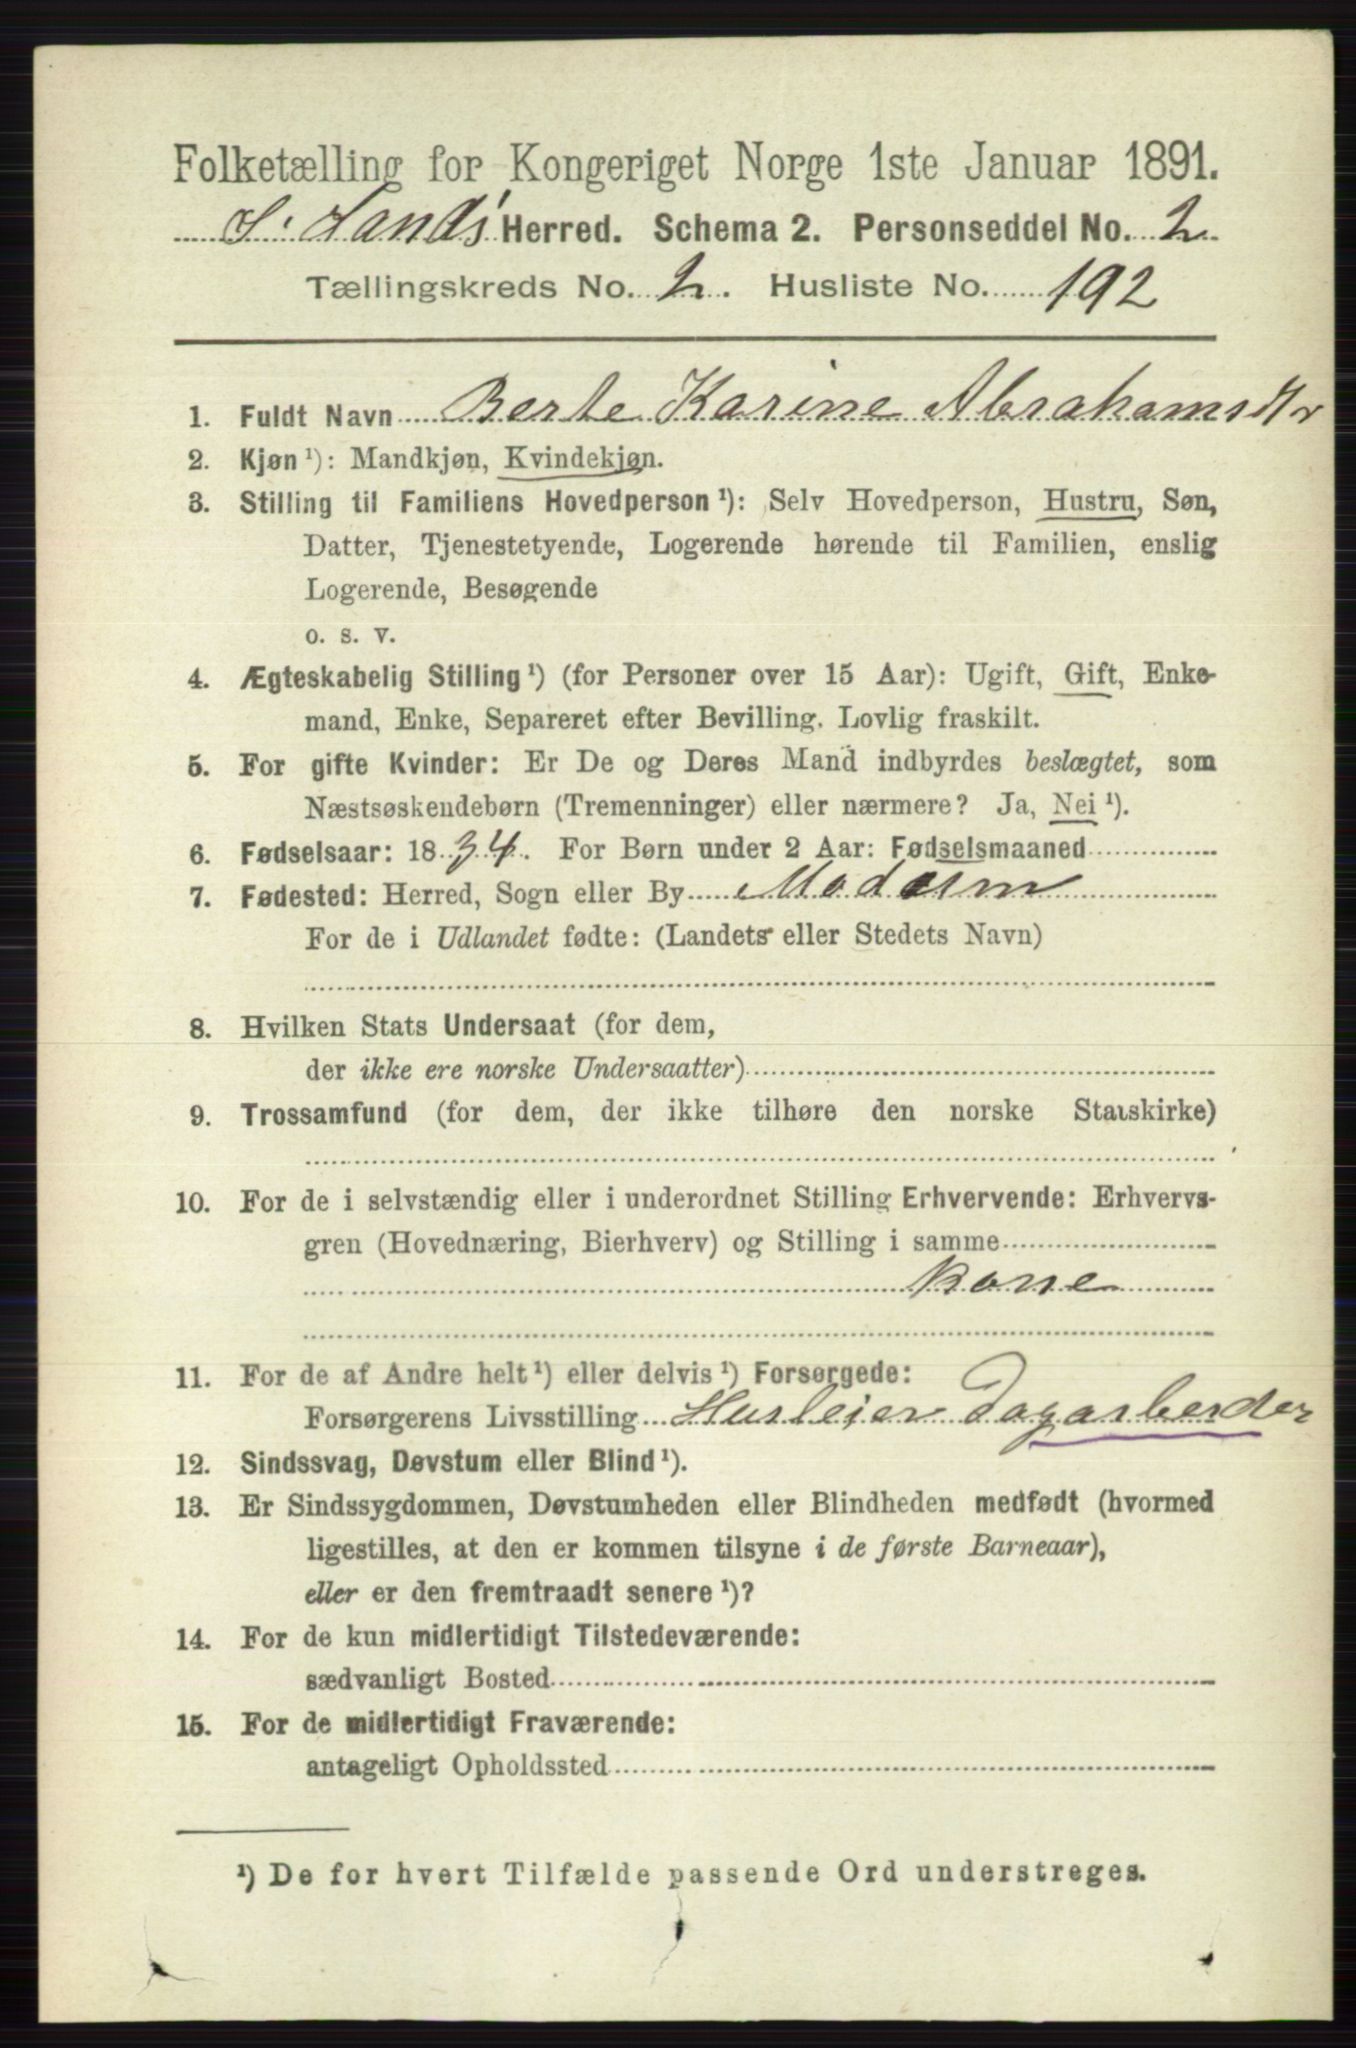 Folketælling for Kongeriget Norge 1ste Januar 1891.
S. Lands Herred. Schema 2. Personseddel No. 2
Tællingskreds No. 2. Husliste No. 192
1. Fuldt Navn Berte Karine Abrahamsdtr
2. Kjøn ¹): Mandkjøn, Kvindekjøn.
3. Stilling til Familiens Hovedperson ¹): Selv Hovedperson, Hustru, Søn,
Datter, Tjenestetyende, Logerende hørende til Familien, enslig
Logerende, Besøgende
o. s. v.
4. Ægteskabelig Stilling ¹) (for Personer over 15 Aar): Ugift, Gift, Enke-
mand, Enke, Separeret efter Bevilling. Lovlig fraskilt.
5. For gifte Kvinder: Er De og Deres Mand indbyrdes beslægtet, som
Næstsøskendebørn (Tremenninger) eller nærmere? Ja, Nei ¹).
6. Fødselsaar: 1834. For Børn under 2 Aar: Fødselsmaaned
7. Fødested: Herred, Sogn eller By Modum
For de i Udlandet fødte: (Landets eller Stedets Navn)
8. Hvilken Stats Undersaat (for dem,
der ikke ere norske Undersaatter)
9. Trossamfund (for dem, der ikke tilhøre den norske Statskirke)
10. For de i selvstændig eller i underordnet Stilling Erhvervende: Erhvervs-
gren (Hovednæring, Bierhverv) og Stilling i samme
Kone
11. For de af Andre helt ¹) eller delvis ¹) Forsørgede:
Forsørgerens Livsstilling Husleier Dagarbeider
12. Sindssvag, Døvstum eller Blind ¹).
13. Er Sindssygdommen, Døvstumheden eller Blindheden medfødt (hvormed
ligestilles, at den er kommen tilsyne i de første Barneaar),
eller er den fremtraadt senere ¹)?
14. For de kun midlertidigt Tilstedeværende:
sædvanligt Bosted
15. For de midlertidigt Fraværende:
antageligt Opholdssted
¹) De for hvert Tilfælde passende Ord understreges.